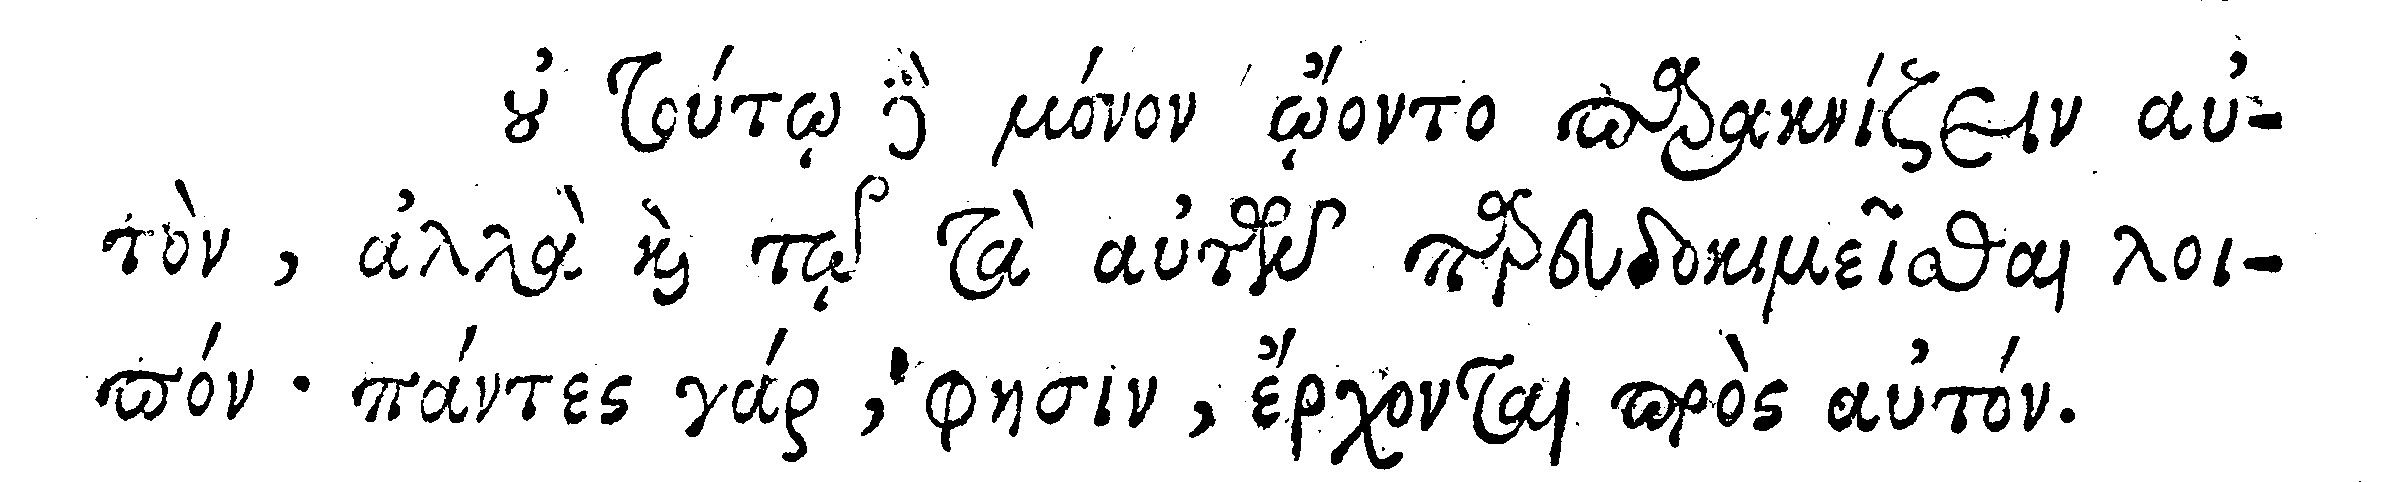 οὐ τούτῳ δὲ μόνον ᾤοντο παρακνίζειν αὐ-
τὸν, ἀλλὰ καὶ τῷ τὰ αὐτοῦ παρευδοκιμεῖσθαι λοι-
πόν· πάντες γάρ, φησιν, ἔρχονται πρὸς αὐτόν.